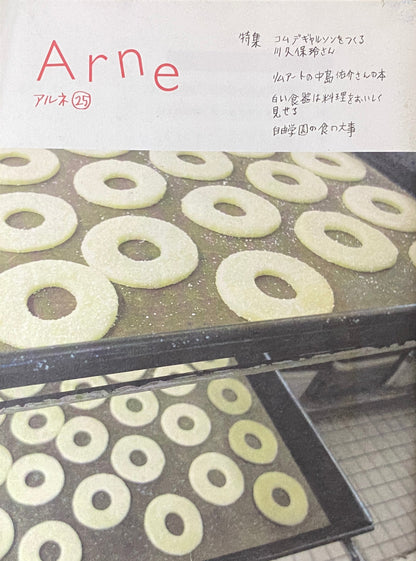 Arne
アルネ ㉕
特集 コムデギャルソンをつくる
川久保玲さん
リムアートの中島佑介さんの本
白い食器は料理をおいしく
見せる
自由学園の食の大事